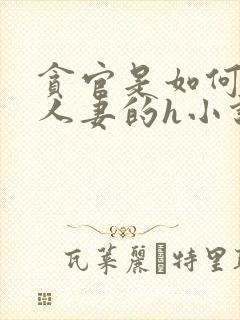 贪官是如何
人妻的h小
瓦莱丽 特里